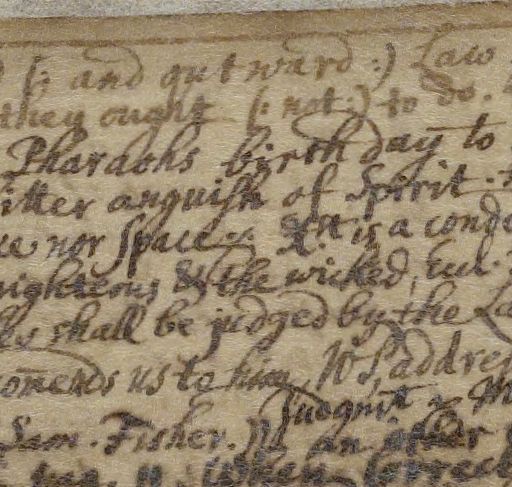 (: and outward :) Law
they ought (: not :) to do.
Pharaohs birth day to
itter anguish of Spirit.
nor Space It is a conde
righteous & the wicked, Eccl.
shall be judged by the La
om̄ends us to him, Ws addres
Judgmt & M
Sam. Fisher. an other
when Correct